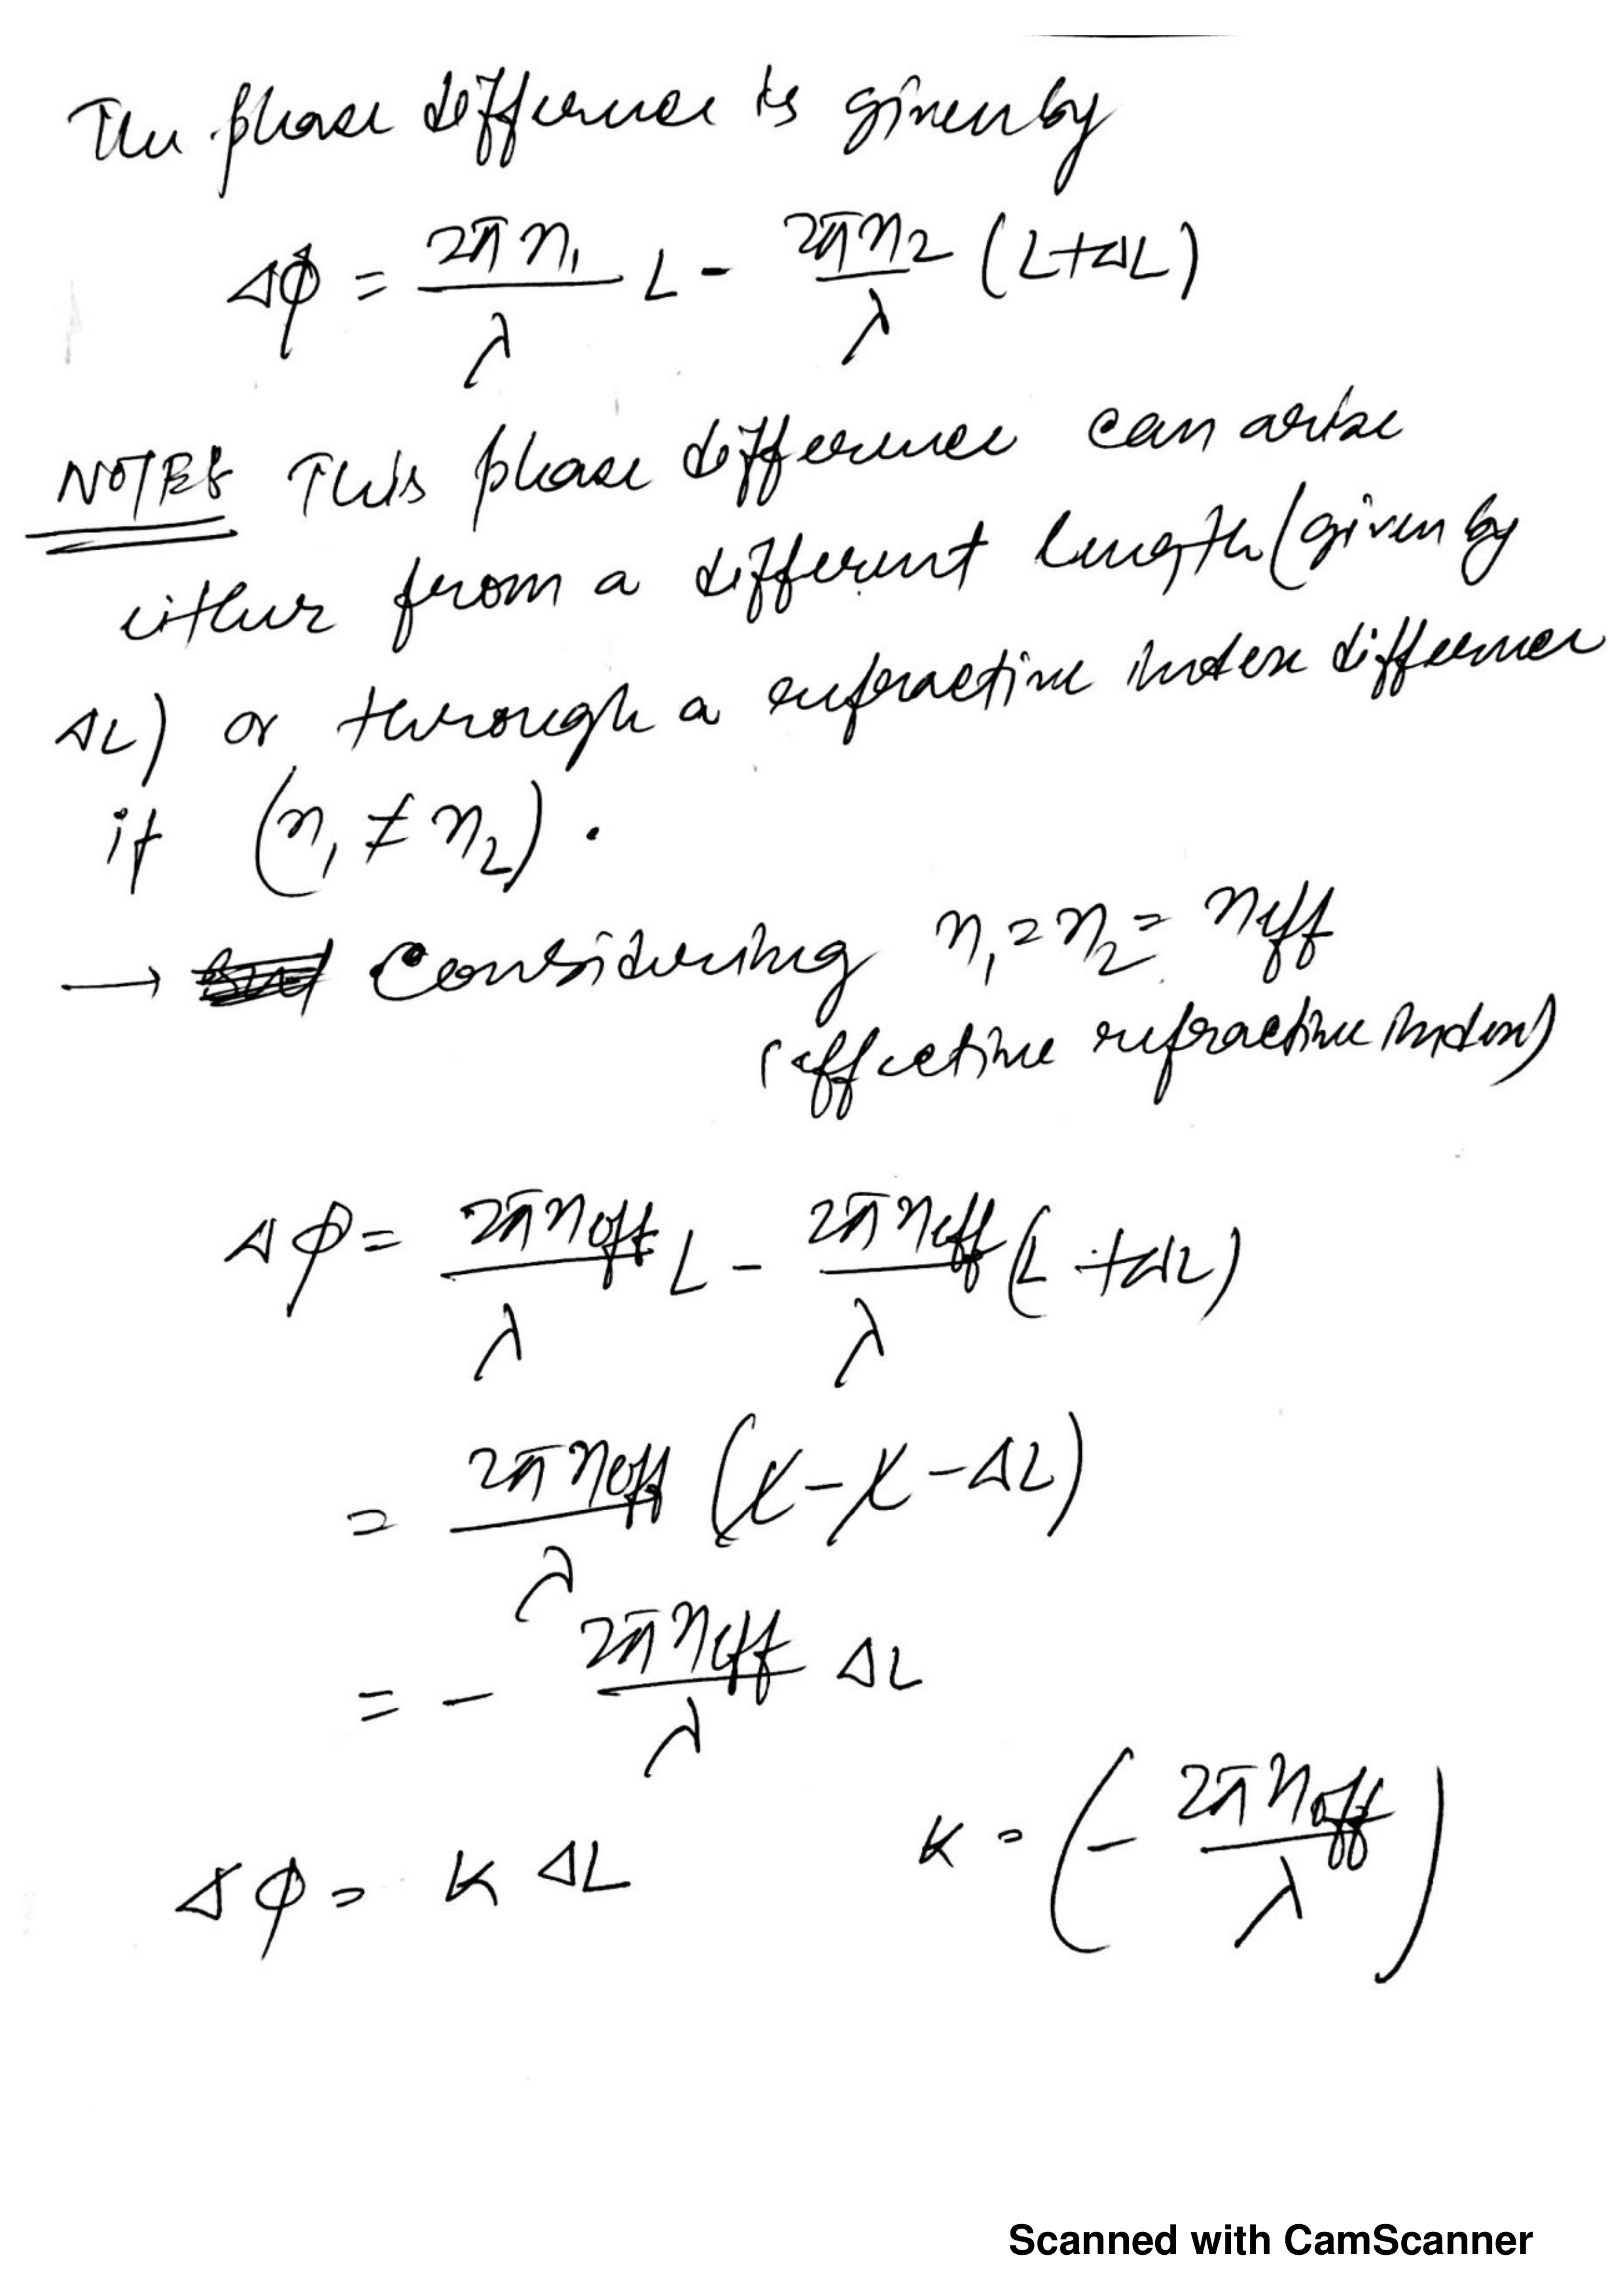 The phase difference is given by
Δϕ = 2πn₁/λ L - 2πn₂/λ (L+ΔL)
NOTES This phase difference can arise
either from a different length (given by
ΔL) or through a refractive index difference
if (n₁ ≠ n₂).
→ Considering n₁ = n₂ = neff
(effective refractive index)
Δϕ = 2πneff/λ L - 2πneff/λ (L + ΔL)
= 2πneff/λ (L - L - ΔL)
= - 2πneff/λ ΔL
Δϕ = K ΔL K = (- 2πneff/λ)
Scanned with CamScanner